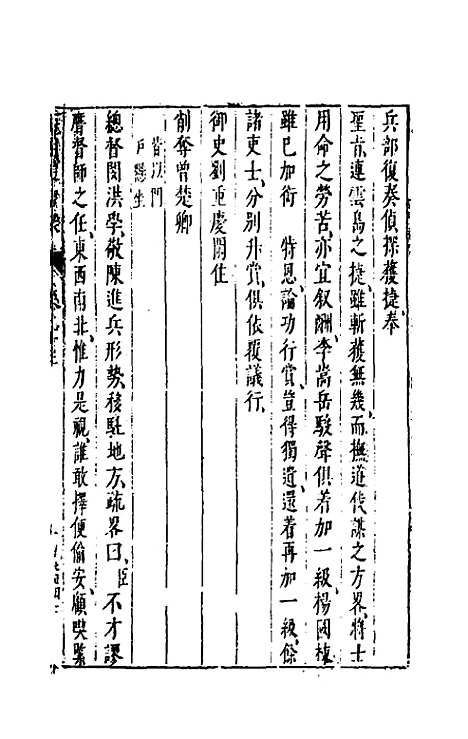 兵部復奏偵探獲捷奉
聖旨連雲島之捷雖斬獲無幾而撫道伐謀之方畧將士
用命之勞苦亦宜叙酬李嵩岳駿聲俱着加一級楊國棟
雖已加銜 特恩論功行賞豈得獨遺還着再加一級餘
諸吏士分别升賞俱依覆議行
御史劉重慶閑住
削奪曾楚卿
總督閻洪學敬陳進兵形勢移駐地方疏畧曰臣不才謬
膺督師之任東西南北惟力是視誰敢擇便偷安顧